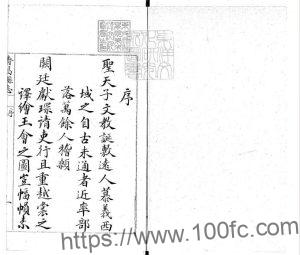 序
聖天子文教誕敷遠人慕義西
域之自古未通者近率部
落萬餘人稽顙
闕廷獻琛請吏行且重越裳之
譯繪王會之圖宣幅幀素
https://www.100fc.com